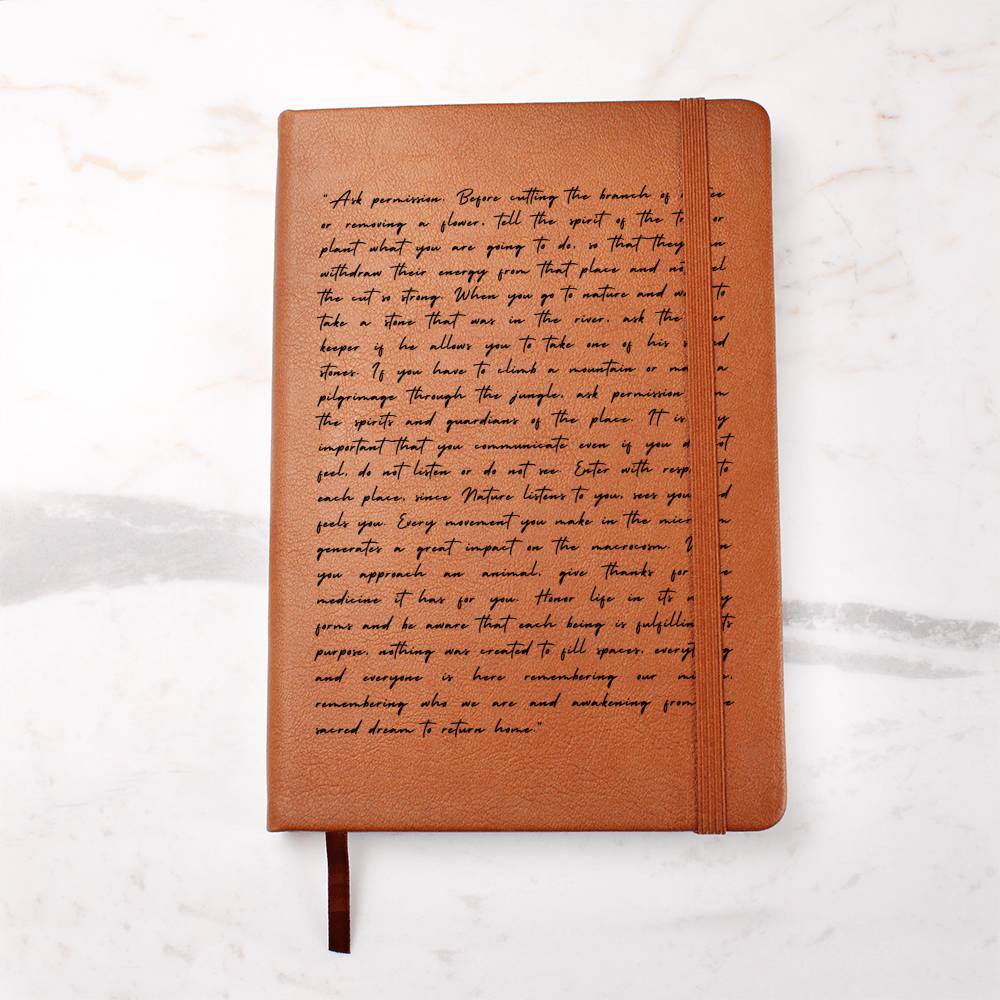 "Ask permission. Before cutting the branch of
or removing a flower, tell the spirit of the or
plant what you are going to do, so that they
withdraw their energy from that place and
the cut so strong. When you go to nature and to
take a stone that was in the river, ask the
keeper if he allows you to take one of his
stones. If you have to climb a mountain or a
pilgrimage through the jungle, ask permission
the spirits and guardians of the place. It is
important that you communicate even if you
feel, do not listen or do not see. Enter with to
each place, since Nature listens to you, sees you
feels you. Every movement you make in the
generates a great impact on the macrocosm.
you approach an animal, give thanks for
medicine it has for you. Honor life in its
forms and be aware that each being is fulfilling
purpose, nothing was created to fill spaces,
and everyone is here remembering our
remembering who we are and awakening from
sacred dream to return home."